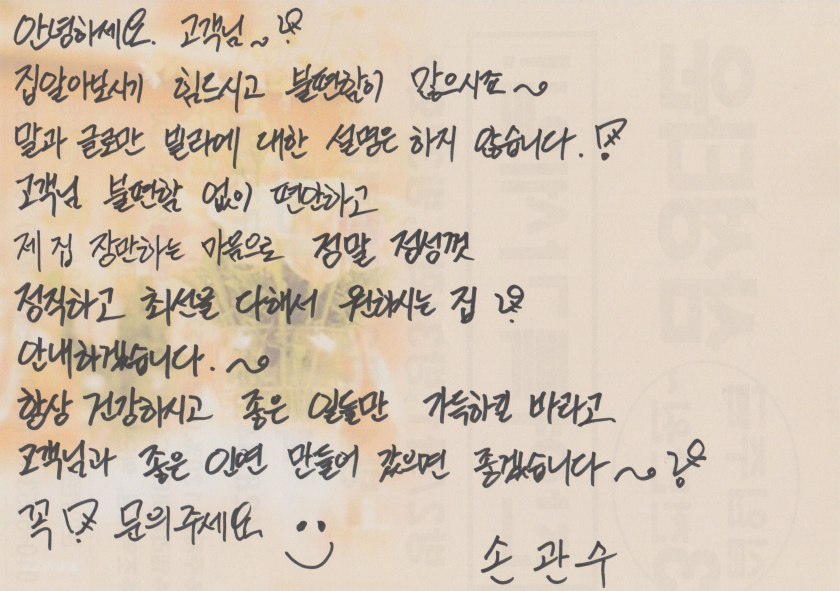 안녕하세요. 고객님~
집알아보시기 힘드시고 불편함이 많으시죠~
말과 글로만 빌라에 대한 설명은 하지 않습니다.
고객님 불편함 없이 편안하고
제 집 장만하는 마음으로 정말 정성껏
정직하고 최선을 다해서 원하시는 집
안내하겠습니다.~
항상 건강하시고 좋은 일들만 가득하길 바라고
고객님과 좋은 인연 만들어 갔으면 좋겠습니다~
꼭 문의주세요
손관수